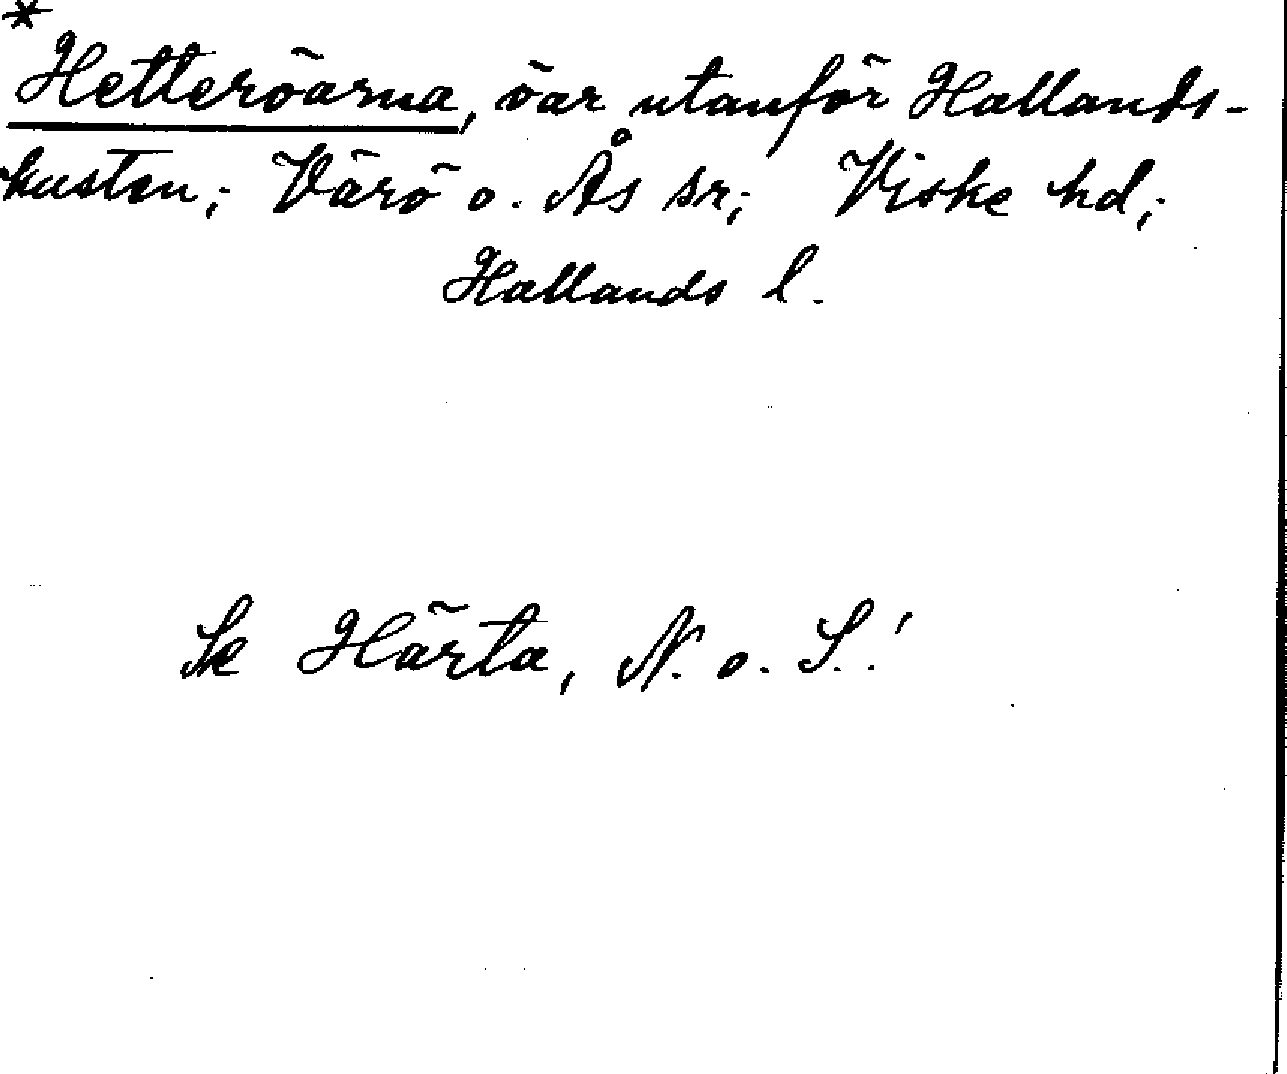 *
Hetteröarna, öar utanför Hallands-
kusten; Värö o. Ås sr; Viske hd;
Hallands l.
Se Härta, N. o. S.!